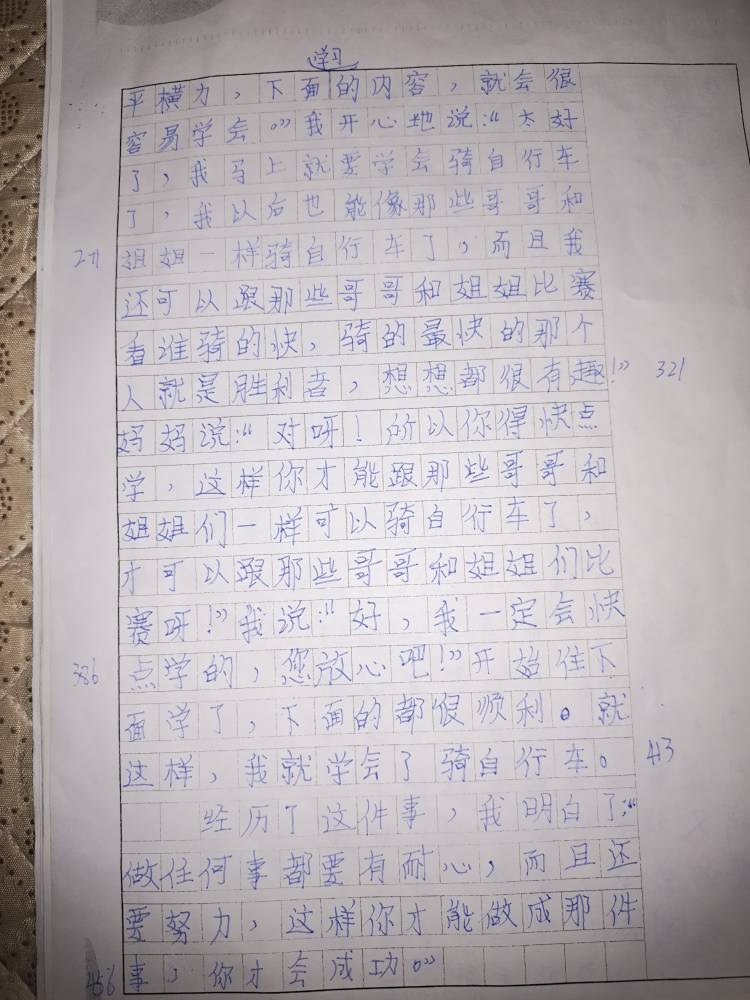 学习
平横力，下面的内容，就会很
容易学会。”我开心地说：“太好
了，我马上就要学会骑自行车
了，我以后也能像那些哥哥和
271 姐姐一样骑自行车了，而且我
还可以跟那些哥哥和姐姐比赛
看谁骑的快，骑的最快的那个
人就是胜利者，想想都很有趣！” 321
妈妈说：“对呀！所以你得快点
学，这样你才能跟那些哥哥和
姐姐们一样可以骑自行车了，
才可以跟那些哥哥和姐姐们比
赛呀！”我说：“好，我一定会快
386 点学的，您放心吧！”开始住下
面学了，下面的都很顺利。就
这样，我就学会了骑自行车。 413
经历了这件事，我明白了：“
做任何事都要有耐心，而且还
要努力，这样你才能做成那件
456 事，你才会成功。”